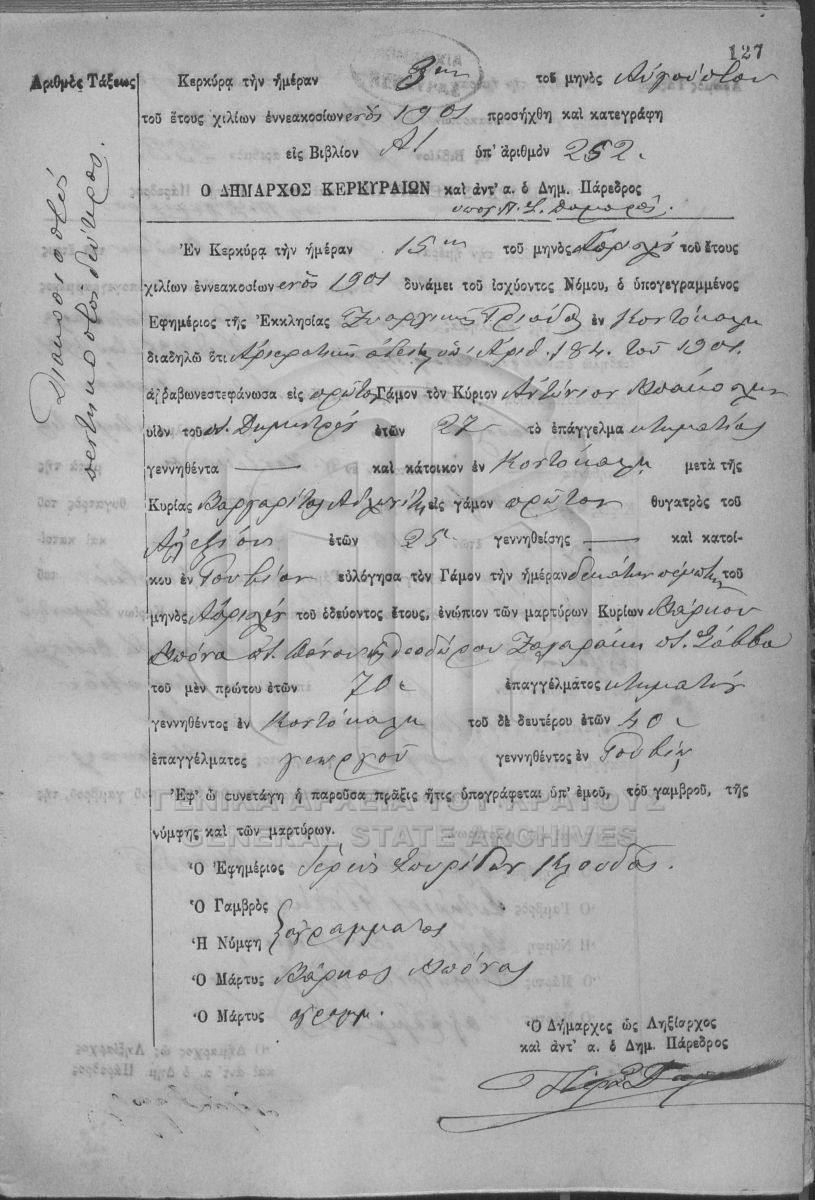 127
Ἀριθμὸς Τάξεως
Διακόσια πεντήκοντα δεύτερος.
Κερκύρᾳ τὴν ἡμέραν 3ην τοῦ μηνὸς Αὐγούστου
τοῦ ἔτους χιλίων ἐννεακοσίων ἑνὸς 1901 προσήχθη καὶ κατεγράφη
εἰς Βιβλίον Α1 ὑπ' ἀριθμὸν 252.
Ὁ ΔΗΜΑΡΧΟΣ ΚΕΡΚΥΡΑΙΩΝ καὶ ἀντ' α. ὁ Δημ. Πάρεδρος
Ἐν Κερκύρᾳ τὴν ἡμέραν 15ην τοῦ μηνὸς Ἀπριλίου τοῦ ἔτους
χιλίων ἐννεακοσίων ἑνὸς 1901 δυνάμει τοῦ ἰσχύοντος Νόμου, ὁ ὑπογεγραμμένος
Ἐφημέριος τῆς Ἐκκλησίας Τριάδος ἐν Κοντόκαλι
διαδηλῶ ὅτι Ἀρχιερατικῆς ἀδείας ὑπ' Ἀριθ. 184. τοῦ 1901.
ἀρραβωνεστεφάνωσα εἰς πρῶτον Γάμον τὸν Κύριον Ἀντώνιον
υἱὸν τοῦ π. Δημητρίου ἐτῶν 27 τὸ ἐπάγγελμα κτηματίας
γεννηθέντα — καὶ κάτοικον ἐν Κοντόκαλι μετὰ τῆς
Κυρίας Μαργαρίτας εἰς γάμον πρῶτον θυγατρὸς τοῦ
Ἀλεξίου ἐτῶν 25 γεννηθείσης — καὶ κατοί-
κου ἐν Γουβίον εὐλόγησα τὸν Γάμον τὴν ἡμέραν δεκάτην πέμπτην τοῦ
μηνὸς Ἀπριλίου τοῦ ὁδεύοντος ἔτους, ἐνώπιον τῶν μαρτύρων Κυρίων Μάρκου
Μπόνα π. Πάνου ἢ Θεοδώρου Ζαγαράκη π. Σάββα
τοῦ μὲν πρώτου ἐτῶν 70 ἐπαγγέλματος κτηματίου
γεννηθέντος ἐν Κοντόκαλι τοῦ δὲ δευτέρου ἐτῶν 40
ἐπαγγέλματος γεωργοῦ γεννηθέντος ἐν Γουβίῳ
Ἐφ' ᾧ συνετάγη ἡ παροῦσα πρᾶξις ἥτις ὑπογράφεται ὑπ' ἐμοῦ, τοῦ γαμβροῦ, τῆς
νύμφης καὶ τῶν μαρτύρων.
ΓΕΝΙΚΑ ΑΡΧΕΙΑ ΤΟΥ ΚΡΑΤΟΥΣ
GENERAL STATE ARCHIVES
Ὁ Ἐφημέριος Ἱερεὺς Σπυρίδων Κλούδας.
Ὁ Γαμβρὸς
Ἡ Νύμφη ἀγράμματος
Ὁ Μάρτυς Μάρκος Μπόνας
Ὁ Μάρτυς ἀγραμ.
Ὁ Δήμαρχος ὡς Ληξίαρχος
καὶ ἀντ' α. ὁ Δημ. Πάρεδρος